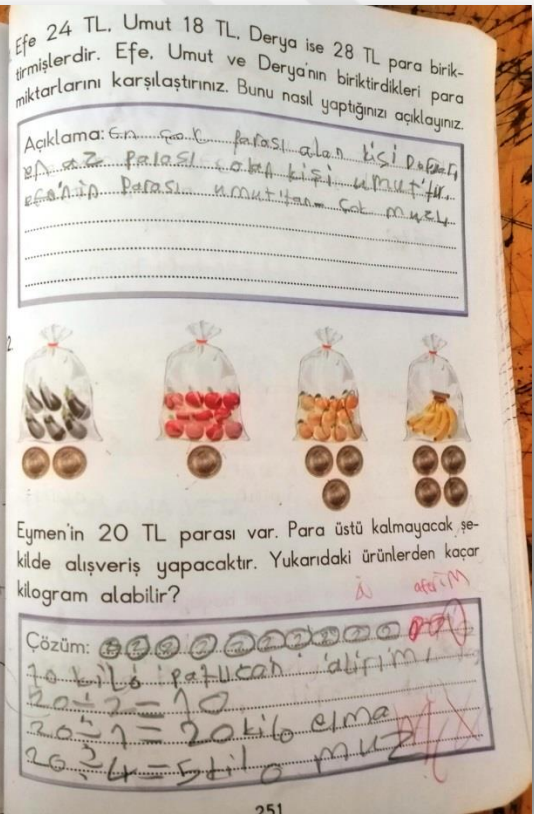 Efe 24 TL, Umut 18 TL, Derya ise 28 TL para birik-
tirmişlerdir. Efe, Umut ve Derya'nın biriktirdikleri para
miktarlarını karşılaştırınız. Bunu nasıl yaptığınızı açıklayınız.
Açıklama: en çok parası alan kişi
en az parası kişi umut'tur.
parası umut'tan çok
2.
Eymen'in 20 TL parası var. Para üstü kalmayacak şe-
kilde alışveriş yapacaktır. Yukarıdaki ürünlerden kaçar
kilogram alabilir?
aferim
Çözüm: 2 2 2 2 2 2 2 2 2
10 kilo patlıcan alırım
20÷2=10
20÷1=20 kilo elma
20÷4=5 kilo muz
251